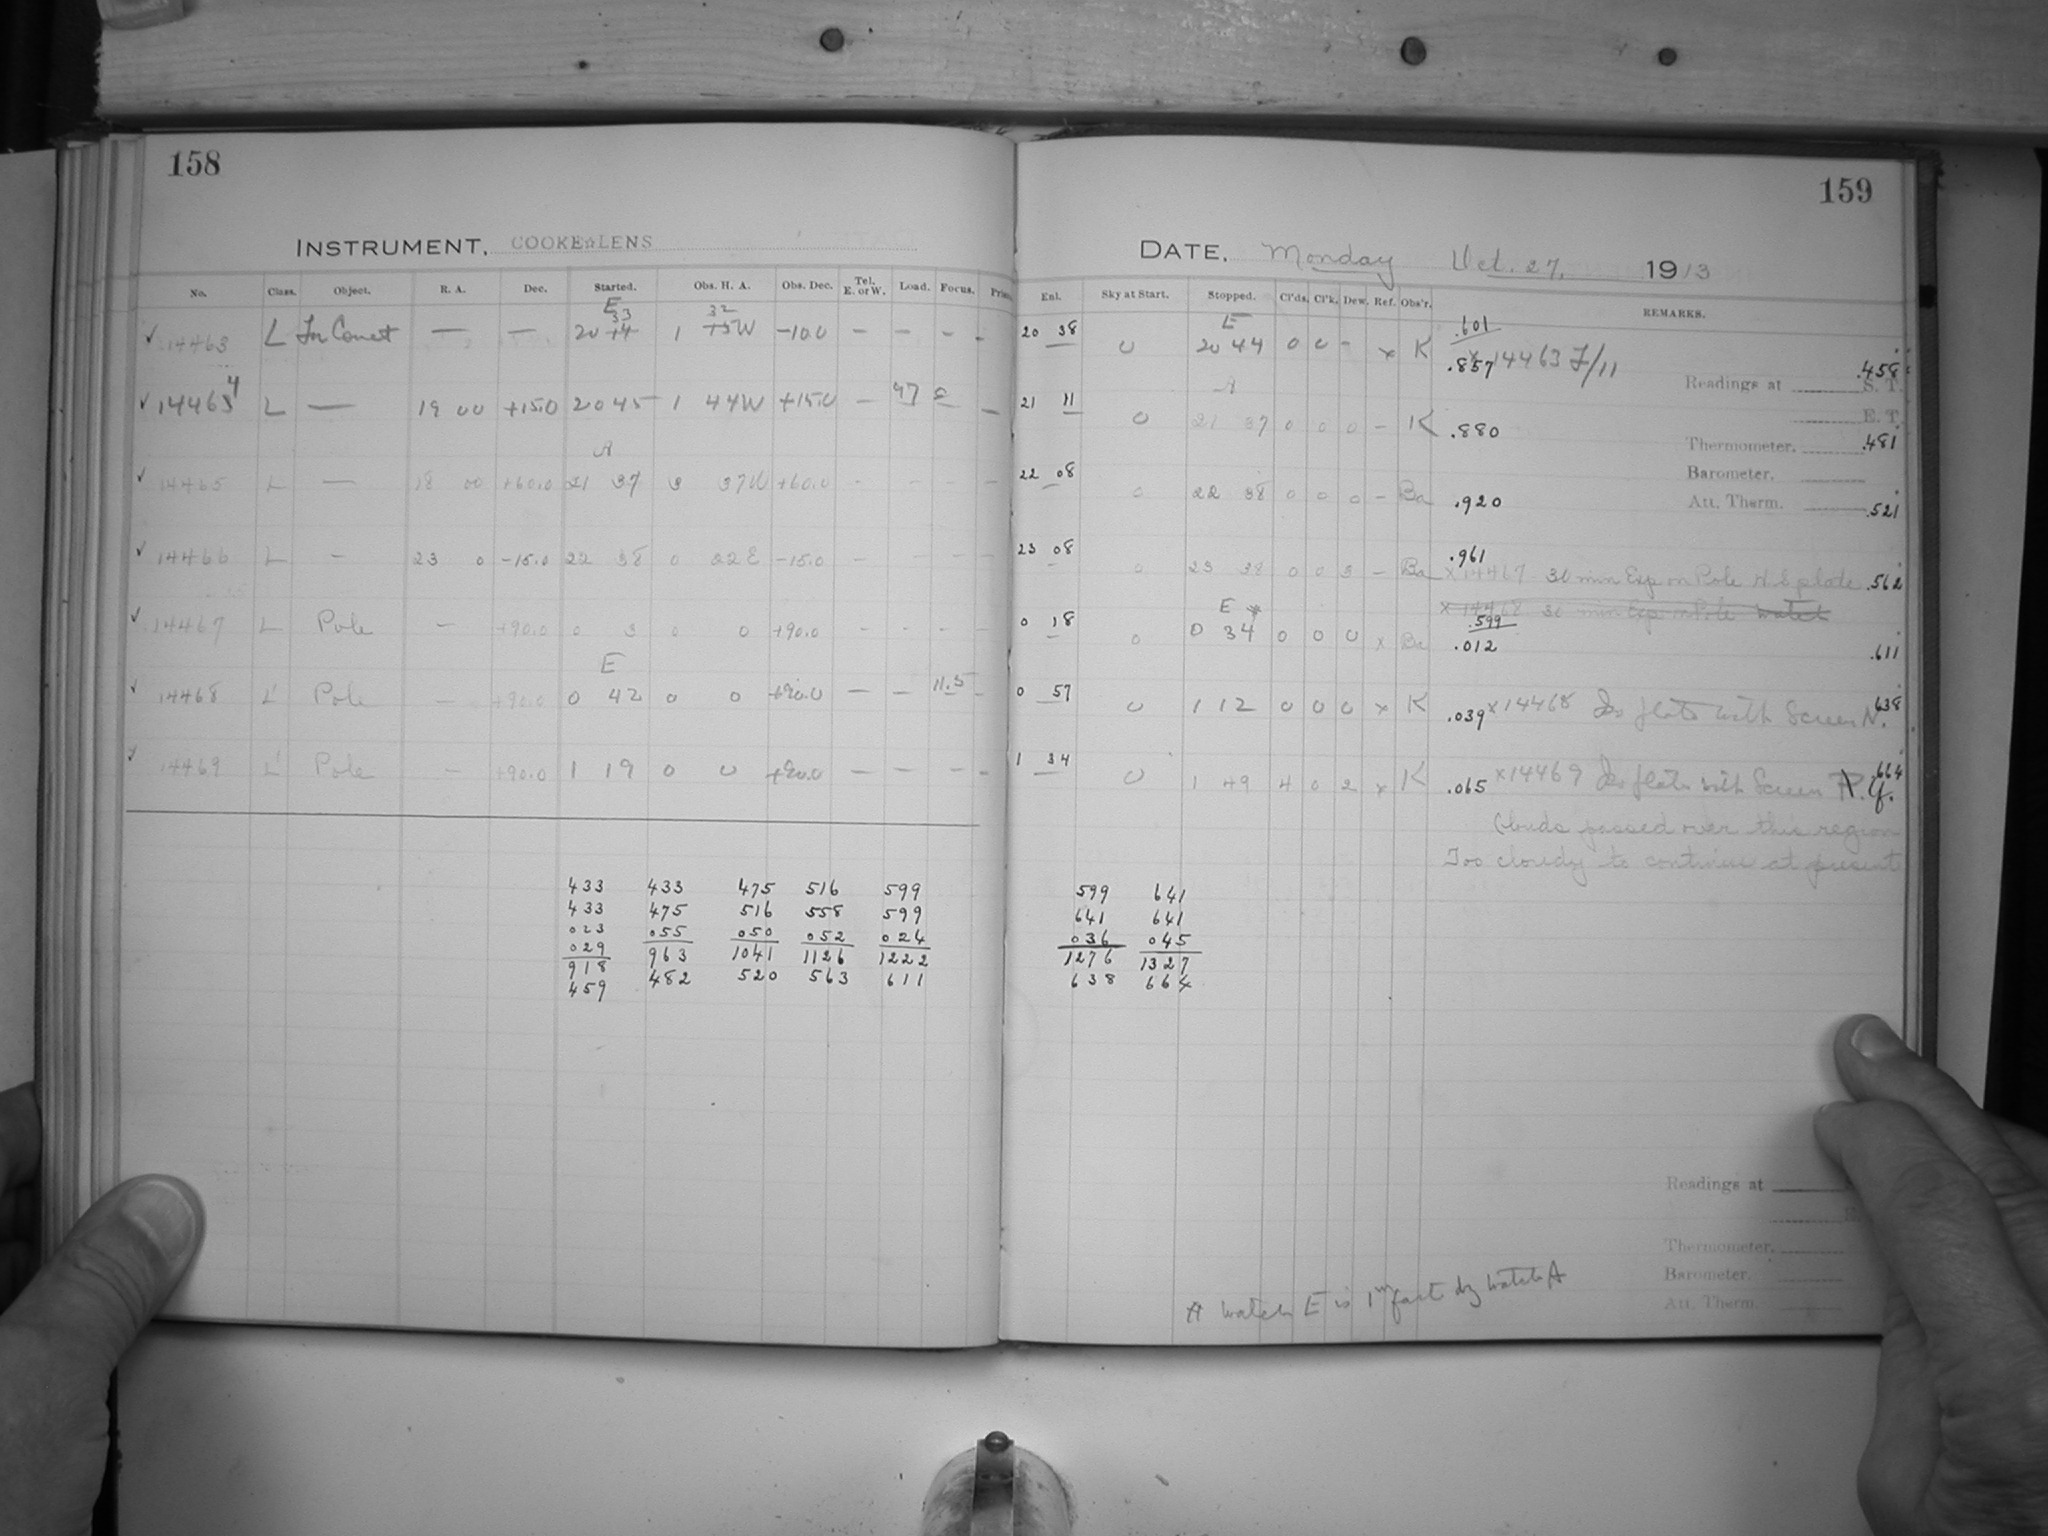 158
INSTRUMENT. COOKE☆LENS
No. Class. Object. R. A. Dec. Started. Obs. H. A. Obs. Dec. Tel. E. or W. Load. Focus.
E
33 32
✓ 14463 L For Comet — — 20 44 1 45W -10.0 — — - -
4
✓ 14463 L — 19 00 +15.0 20 45 1 44W +15.0 — 47 2 —
A
✓ 14465 L — 18 00 +60.0 21 37 3 37W +60.0 - - - -
✓ 14466 L - 23 0 -15.0 22 38 0 22E -15.0 - - - -
✓ 14467 L Pole - +90.0 0 3 0 0 +90.0 - - - -
E
✓ 14468 L' Pole - +90.0 0 42 0 0 +90.0 — — 11.5 -
✓ 14469 L' Pole - +90.0 1 19 0 0 +90.0 — — - -
433 433 475 516 599
433 475 516 558 599
023 055 050 052 024
029 963 1041 1126 1222
918 482 520 563 611
459
159
DATE. Monday Oct. 27, 1913
Enl. Sky at Start. Stopped. Cl'ds. Cl'k. Dew. Ref. Obs'r. REMARKS.
E .601
20 38 0 20 44 0 0 - x K .857 x 14463 F/11 .458
Readings at S. T.
A
21 11 0 21 37 0 0 0 - K .880 E. T.
Thermometer. .481
Barometer.
22 08 0 22 38 0 0 0 - Ba .920 Att. Therm. .521
.961
23 08 0 23 38 0 0 3 - Ba x 14467 30 min Exp on Pole N.S plate .562
E * x 14468 30 min Exp on Pole watch
.599
0 18 0 0 34 0 0 0 x Ba .012 .611
0 57 0 1 12 0 0 0 x K .039 x 14468 Iso plate with Screen N. .638
1 34 0 1 49 4 0 2 x K .065 x 14469 Iso plate with Screen .664
Clouds passed over this region
Too cloudy to continue at present
599 641
641 641
036 045
1276 1327
638 664
Readings at
Thermometer.
Barometer.
Att. Therm.
* Watch E is 1m fast by watch A